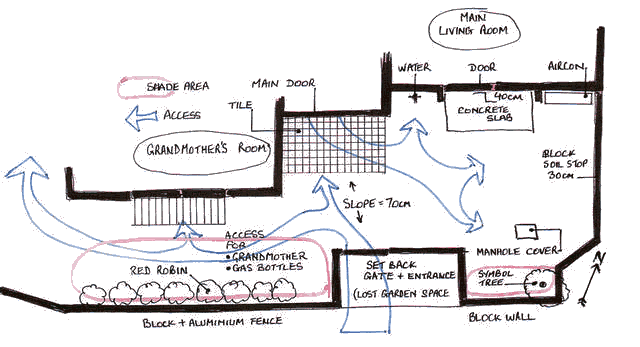 MAIN
LIVING ROOM
SHADE AREA
MAIN DOOR
WATER
DOOR
AIRCON
ACCESS
TILE
40CM
CONCRETE
SLAB
GRANDMOTHER'S ROOM
BLOCK
SOIL STOP
30CM
SLOPE = 70CM
ACCESS
FOR
• GRANDMOTHER
• GAS BOTTLES
RED ROBIN
SET BACK
GATE + ENTRANCE
(LOST GARDEN SPACE
MANHOLE COVER
SYMBOL
TREE
N
BLOCK + ALUMINIUM FENCE
BLOCK WALL